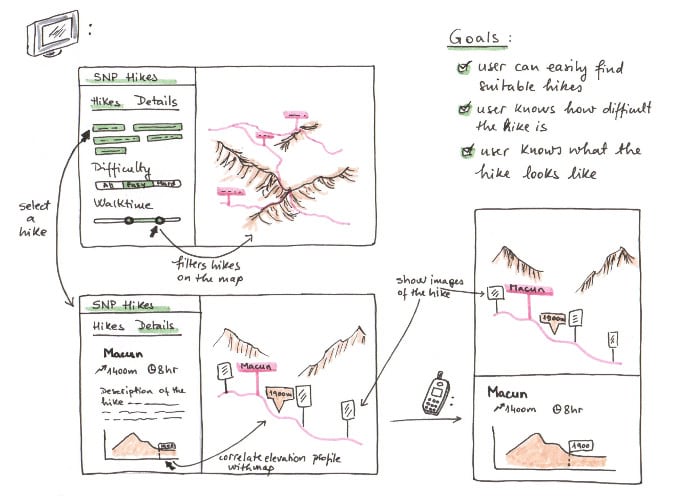 :
Goals :
user can easily find
suitable hikes
user knows how difficult
the hike is
user knows what the
hike looks like
SNP Hikes
Hikes Details
Difficulty
All Easy Hard
Walktime
select
a
hike
filters hikes
on the map
SNP Hikes
Hikes Details
Macun
1400m 8hr
Description of the
hike
Macun
1900m
correlate elevation profile
with map
show images
of the hike
:
Macun
1900m
Macun
1400m 8hr
1900